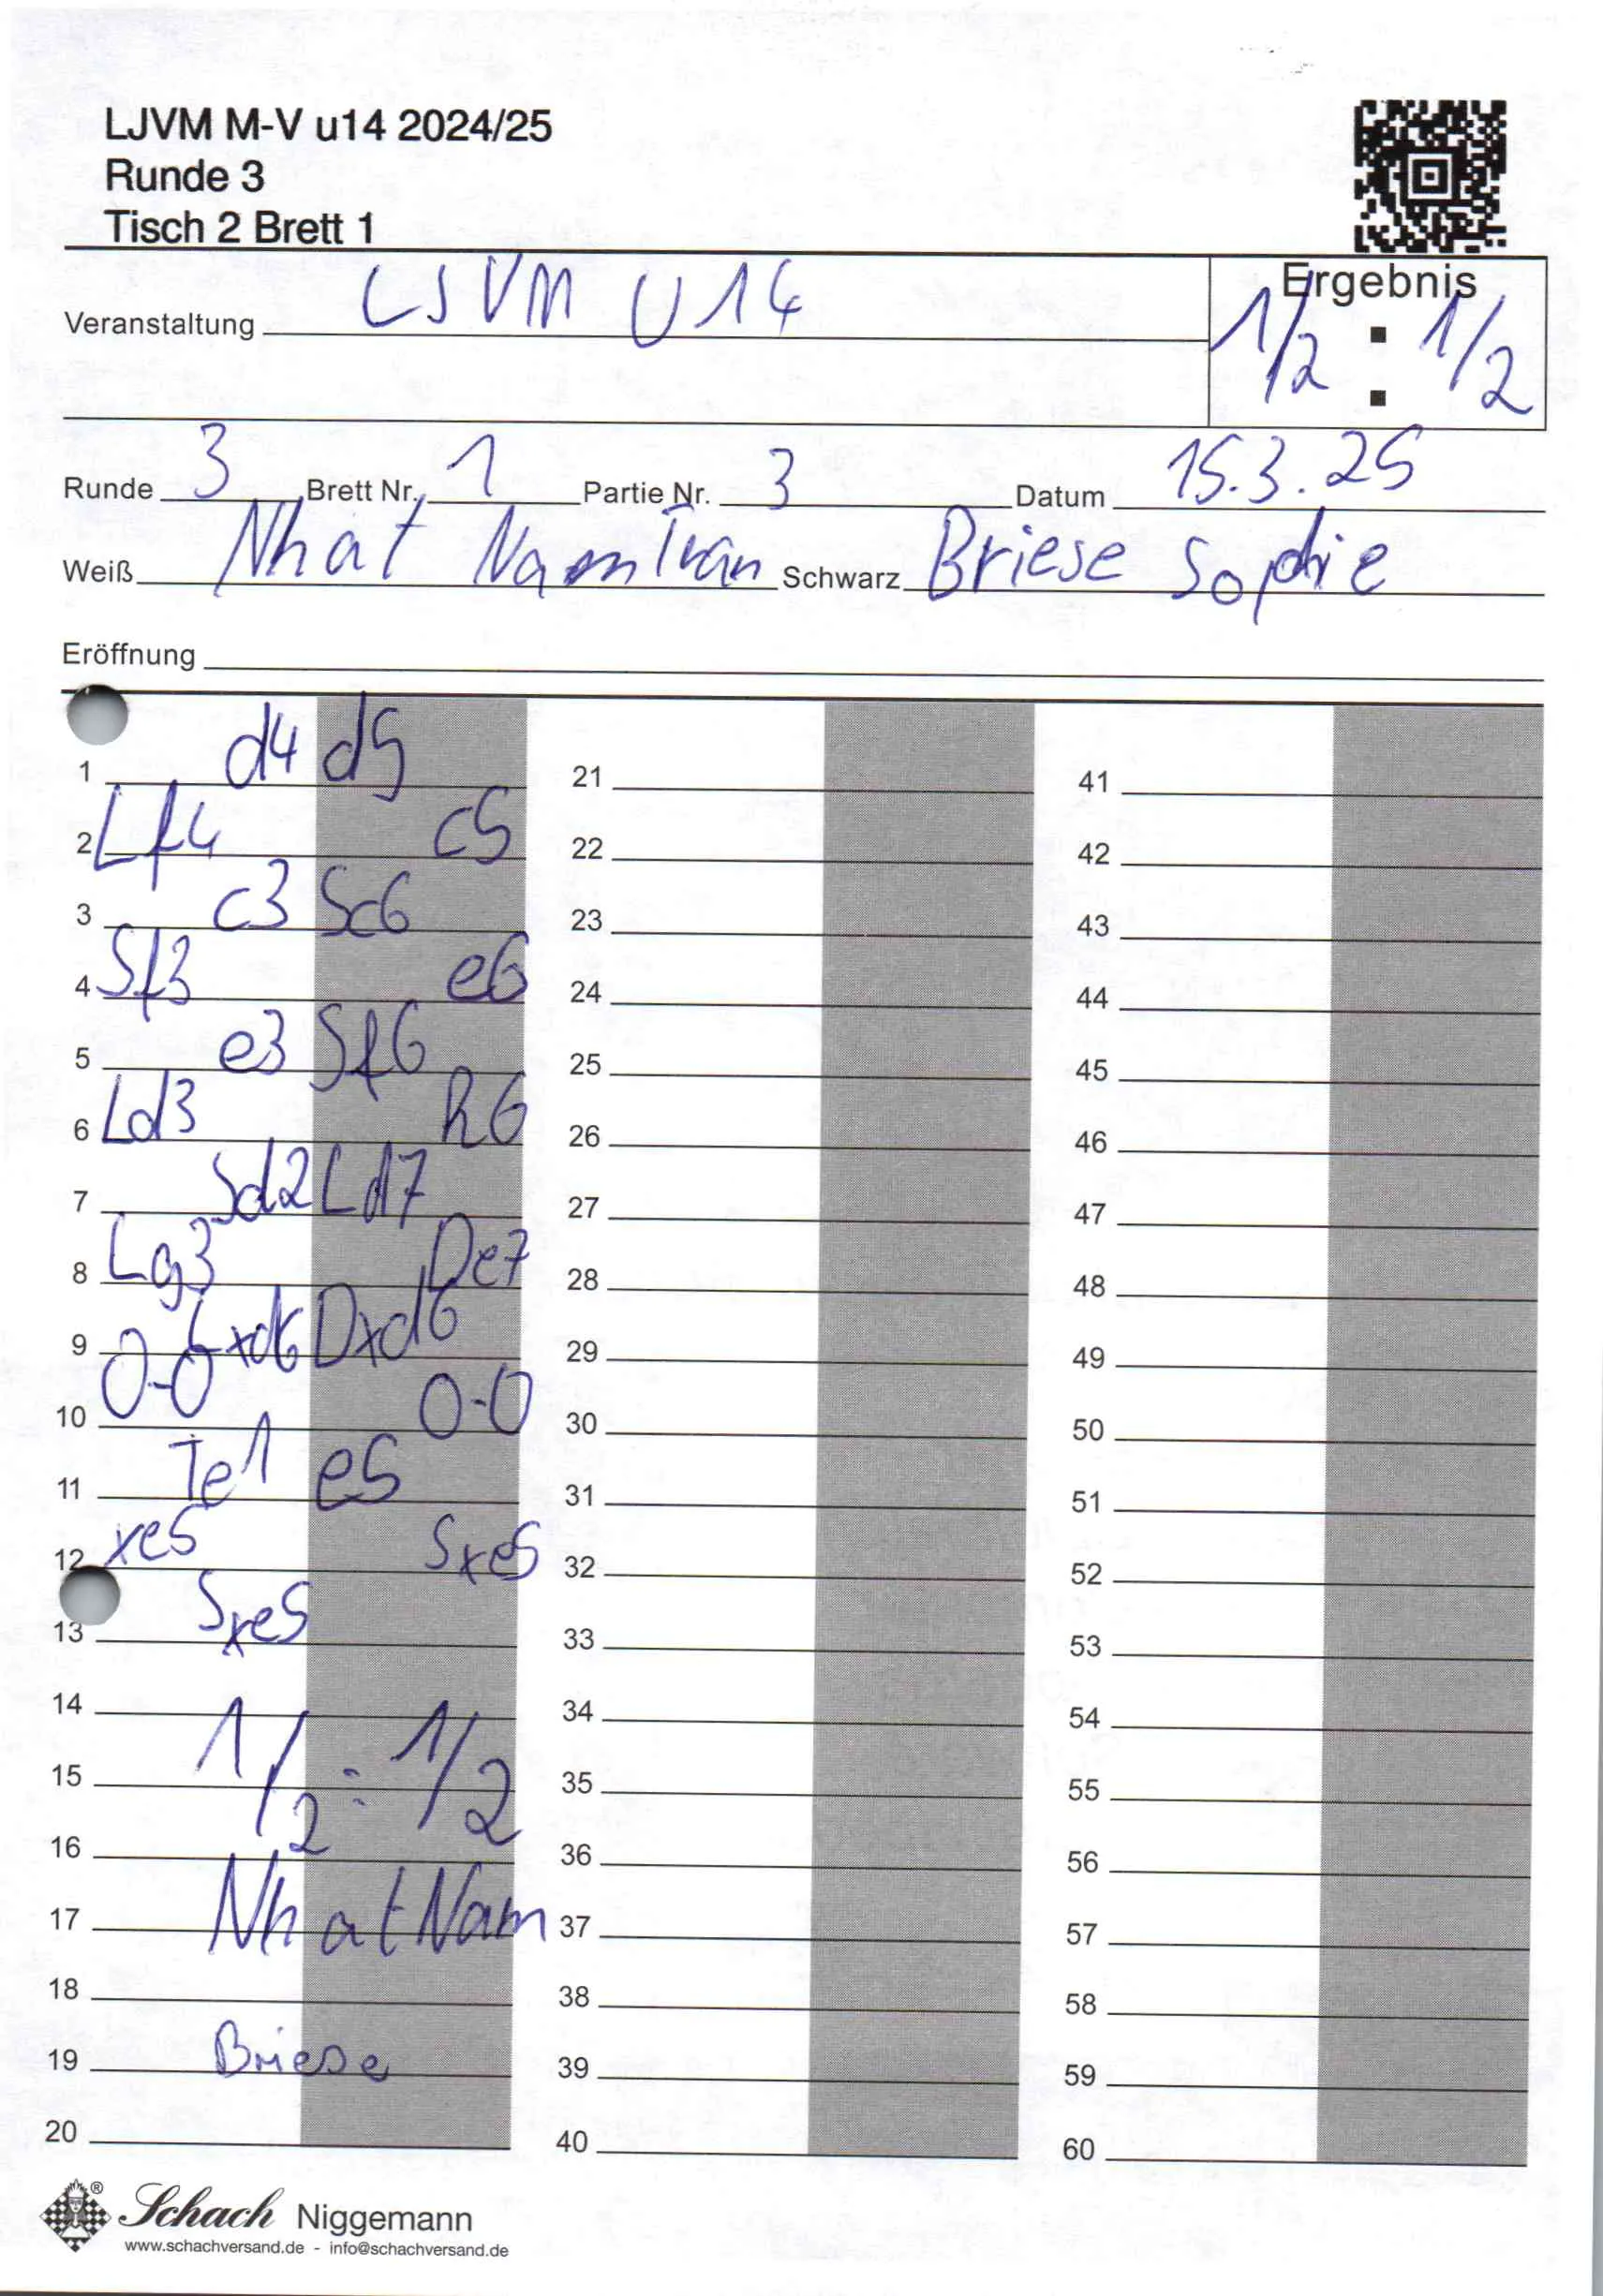 LJVM M-V u14 2024/25
Runde 3
Tisch 2 Brett 1
Veranstaltung LJVM U14
Ergebnis
1/2 : 1/2
Runde 3 Brett Nr. 1 Partie Nr. 3 Datum 15.3.25
Weiß Nhat Nam Tran Schwarz Briese Sophie
Eröffnung
1 d4 d5 21 41
2 Lf4 c5 22 42
3 c3 Sc6 23 43
4 Sf3 e6 24 44
5 e3 Sf6 25 45
6 Ld3 h6 26 46
7 Sd2 Ld7 27 47
8 Lg3 De7 28 48
9 Lxd6 Dxd6 29 49
10 0-0 0-0 30 50
11 Te1 e5 31 51
12 xe5 Sxe5 32 52
13 Sxe5 33 53
14 34 54
15 1/2 : 1/2 35 55
16 36 56
17 Nhat Nam 37 57
18 38 58
19 Briese 39 59
20 40 60
® Schach Niggemann
www.schachversand.de - info@schachversand.de